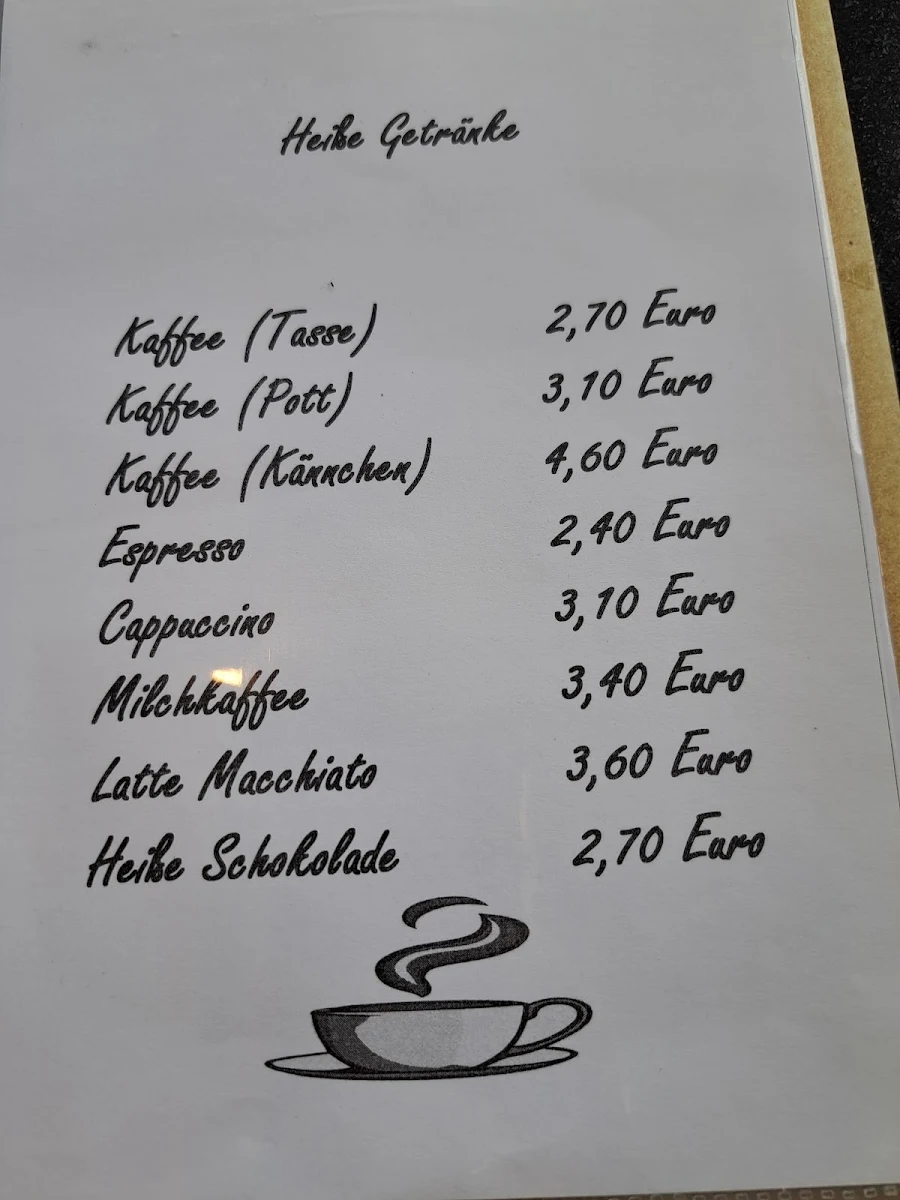 Heiße Getränke
Kaffee (Tasse) 2,70 Euro
Kaffee (Pott) 3,10 Euro
Kaffee (Kännchen) 4,60 Euro
Espresso 2,40 Euro
Cappuccino 3,10 Euro
Milchkaffee 3,40 Euro
Latte Macchiato 3,60 Euro
Heiße Schokolade 2,70 Euro